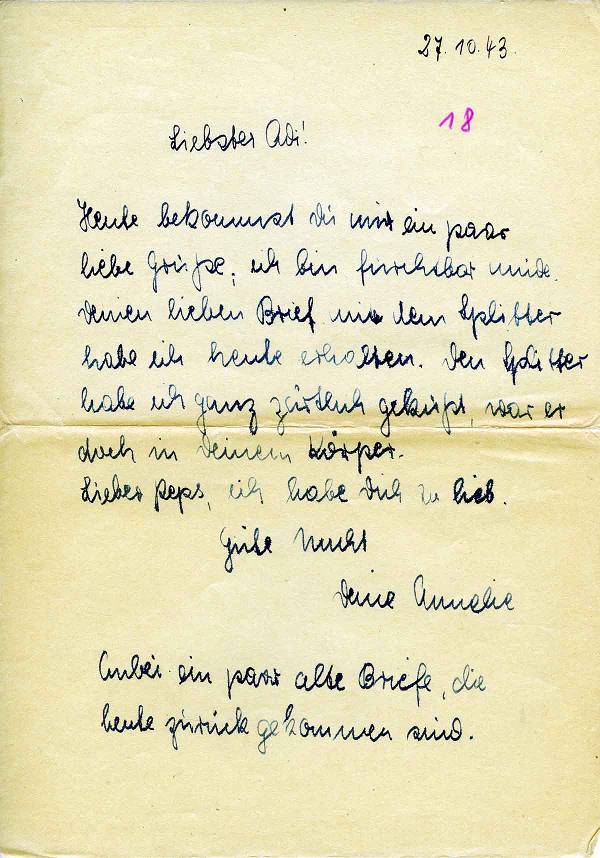 27.10.43.
18
Liebster Adi!
Heute bekommst Du nur ein paar
liebe Grüße, ich bin furchtbar müde.
Deinen lieben Brief mit dem Splitter
habe ich heute erhalten. Den Splitter
habe ich ganz zärtlich geküßt, war er
doch in Deinem Körper.
Lieber Peps, ich habe Dich so lieb.
Gute Nacht
Deine Annelie
Anbei ein paar alte Briefe, die
heute zurück gekommen sind.